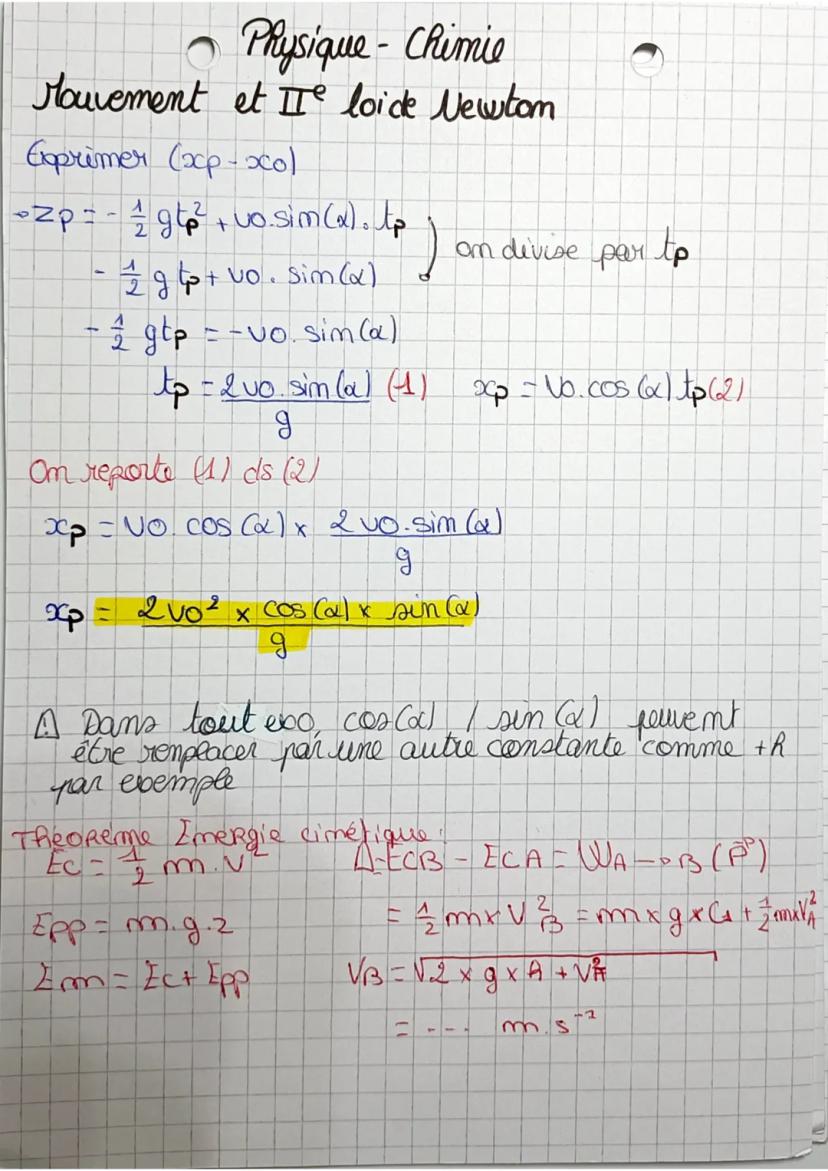 Physique - Chimie
Mouvement et IIe loi de Newton
Exprimer (xp - x0)
→ zp = - 1/2 g tp² + v0.sin(α). tp
- 1/2 g tp + v0. sin(α)
on divise par tp
- 1/2 gtp = -v0. sin(α)
tp = 2v0.sin(α)/g (1) xp = v0.cos(α) tp (2)
On reporte (1) ds (2)
xp = v0. cos(α) × 2v0.sin(α)/g
xp = 2v0² × cos(α) × sin(α)/g
⚠ Dans tout exo, cos(α) / sin(α) peuvent
être remplacer par une autre constante comme +h
par exemple
Théorème Energie cinétique:
Ec = 1/2 m.v²
Epp = m.g.z
Em = Ec + Epp
Δ = ECB - ECA = WA→B (P)
= 1/2 m×V²B = m×g× + 1/2 m×V²A
VB = √2 × g × A + V²A
= ... m.s⁻¹